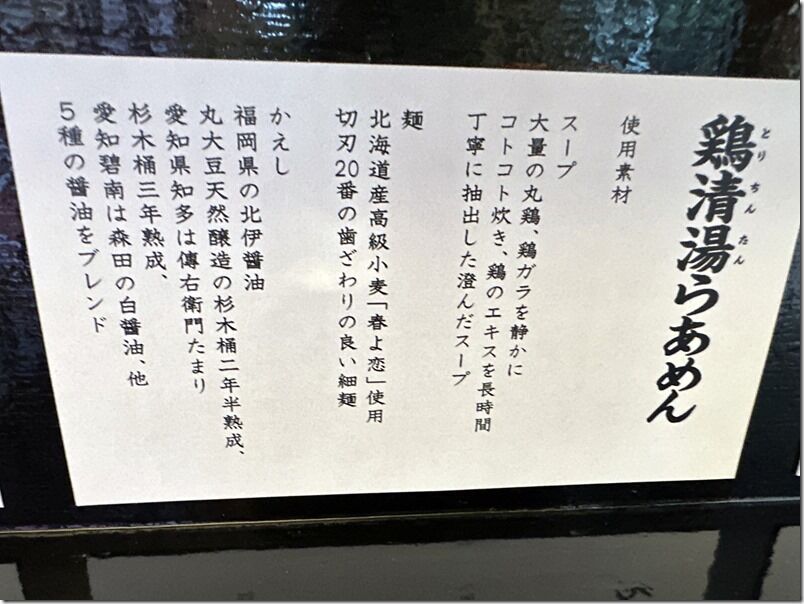 鶏清湯らあめん
とりちんたん
使用素材
スープ
大量の丸鶏、鶏ガラを静かに
コトコト炊き、鶏のエキスを長時間
丁寧に抽出した澄んだスープ
麺
北海道産高級小麦「春よ恋」使用
切刃20番の歯ざわりの良い細麺
かえし
福岡県の北伊醤油
丸大豆天然醸造の杉木桶二年半熟成、
愛知県知多は傳右衛門たまり
杉木桶三年熟成、
愛知碧南は森田の白醤油、他
5種の醤油をブレンド